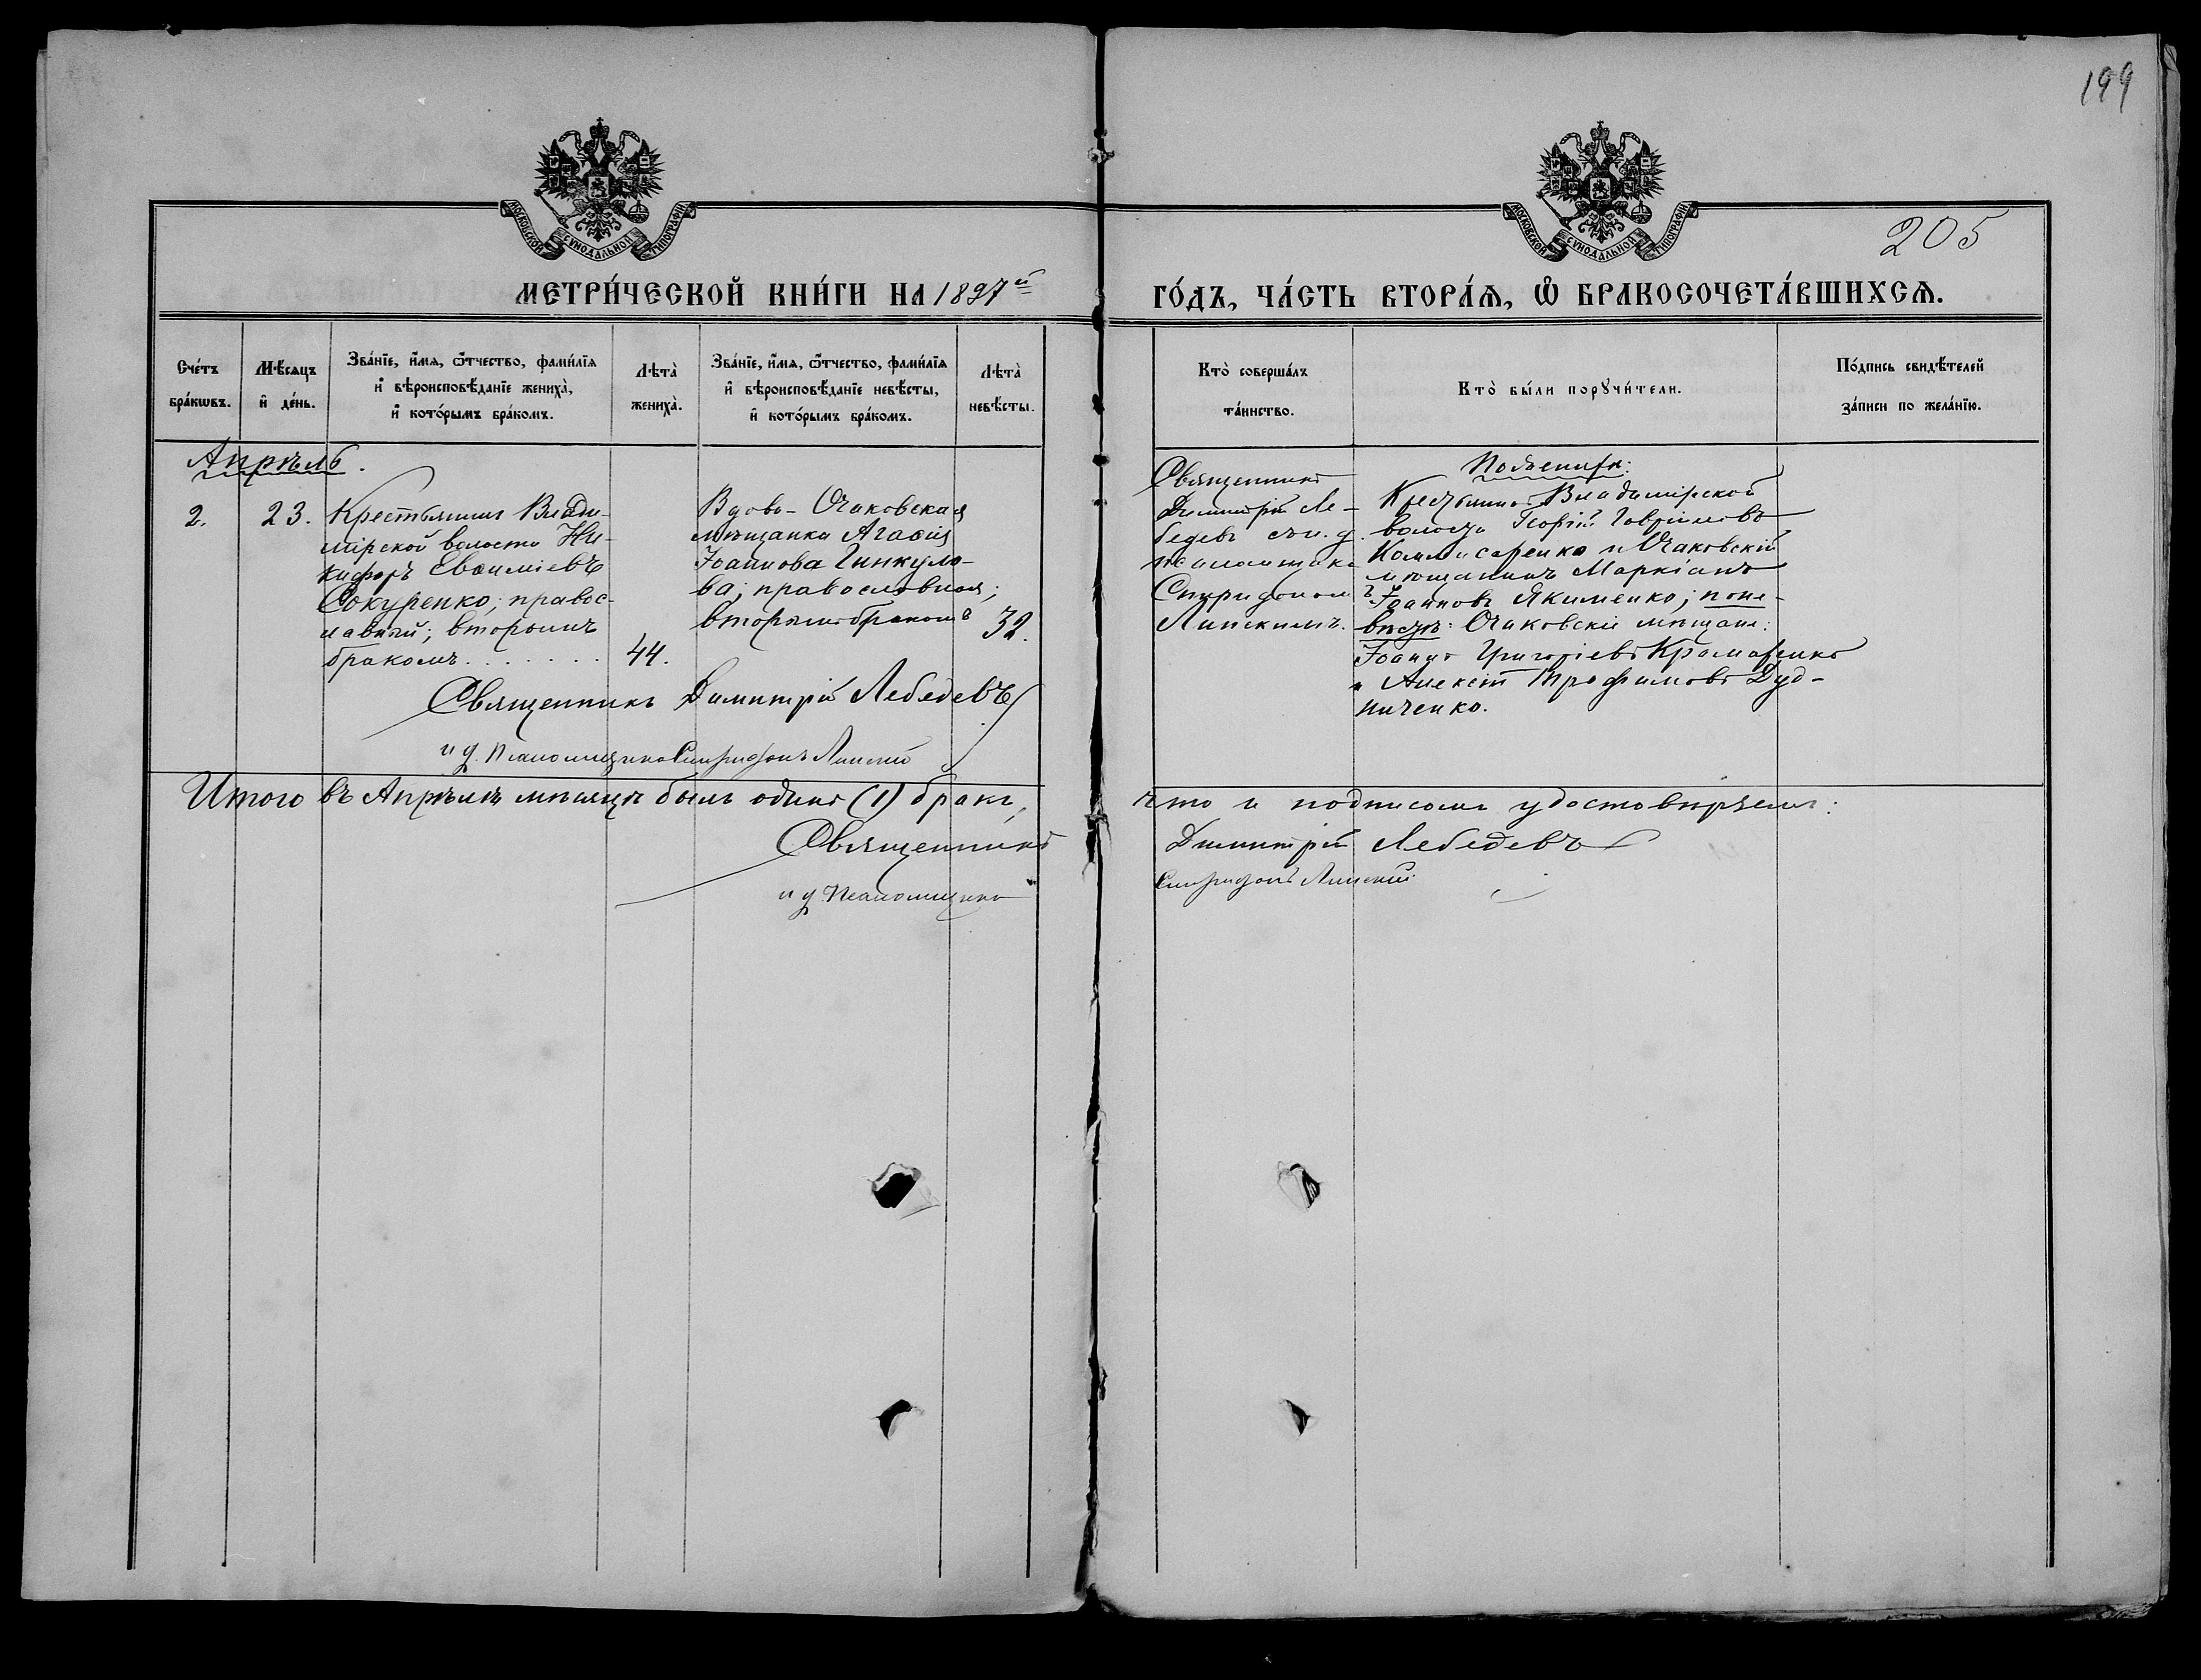 199
МОСКОВСКОЙ СѴНОДАЛЬНОЙ ТИПОГРАФІИ
МОСКОВСКОЙ СѴНОДАЛЬНОЙ ТИПОГРАФІИ
205
МЕТРИ́ЧЕСКОЙ КНИ́ГИ НА 1897й
ГО́ДЪ, ЧА́СТЬ ВТОРА́Ѧ, Ѡ҆ БРАКОСОЧЕТА́ВШИХСѦ.
Сче́тъ
бра́кѡвъ.
Мѣ́сяцъ
и҆ де́нь.
Зва́нїе, и҆́мѧ, ѻ҆́тчество, фами́лїѧ
и҆ вѣроисповѣ́данїе жениха̀,
и҆ кото́рымъ бра́комъ.
Лѣта̀
жениха̀.
Зва́нїе, и҆́мѧ, ѻ҆́тчество, фами́лїѧ
и҆ вѣроисповѣ́данїе невѣ́сты,
и҆ кото́рымъ бра́комъ.
Лѣта̀
невѣ́сты.
Кто̀ соверша́лъ
та́инство.
Кто̀ бы́ли порꙋчи́тели.
По́дпись свидѣ́телей
за́писи по жела́нїю.
Апрѣль.
2.
23.
Крестьянинъ Влади-
мірской волости Ни-
кифоръ Евфиміевъ
Сокуренко; правос-
лавный; вторымъ
бракомъ . . . . . . .
44.
Вдова - Очаковская
мѣщанка Агафія
Іоаннова Гинкуло-
ва; православная;
вторымъ бракомъ
32.
Священникъ Димитрій Лебедевъ
и д. Псаломщика Спиридонъ Липскій
Священникъ
Димитрій Ле-
бедевъ съ и. д.
псаломщика
Спиридономъ
Липскимъ.
По женихѣ:
Крестьянинъ Владимірской
волости Георгій Гавріиловъ
Коммисаренко и Очаковскій
мѣщанинъ Маркіанъ
Іоанновъ Якименко; по не-
вѣстѣ: Очаковскіе мѣщане:
Іоаннъ Григоріевъ Крамаренко
и Алексій Трофимовъ Дуд-
ниченко.
Итого въ Апрѣлѣ мѣсяцѣ былъ одинъ (1) бракъ,
что и подписомъ удостовѣряемъ:
Священникъ
Димитрій Лебедевъ
и д. Псаломщика
Спиридонъ Липскій